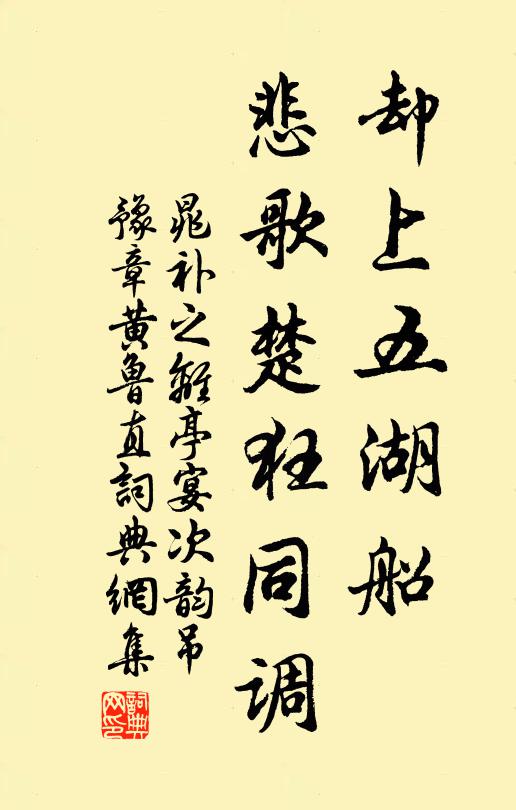 却上五湖船
悲歌楚狂同调
晁补之離亭宴次韵吊
豫章黄魯直詞典網集
詞典网印